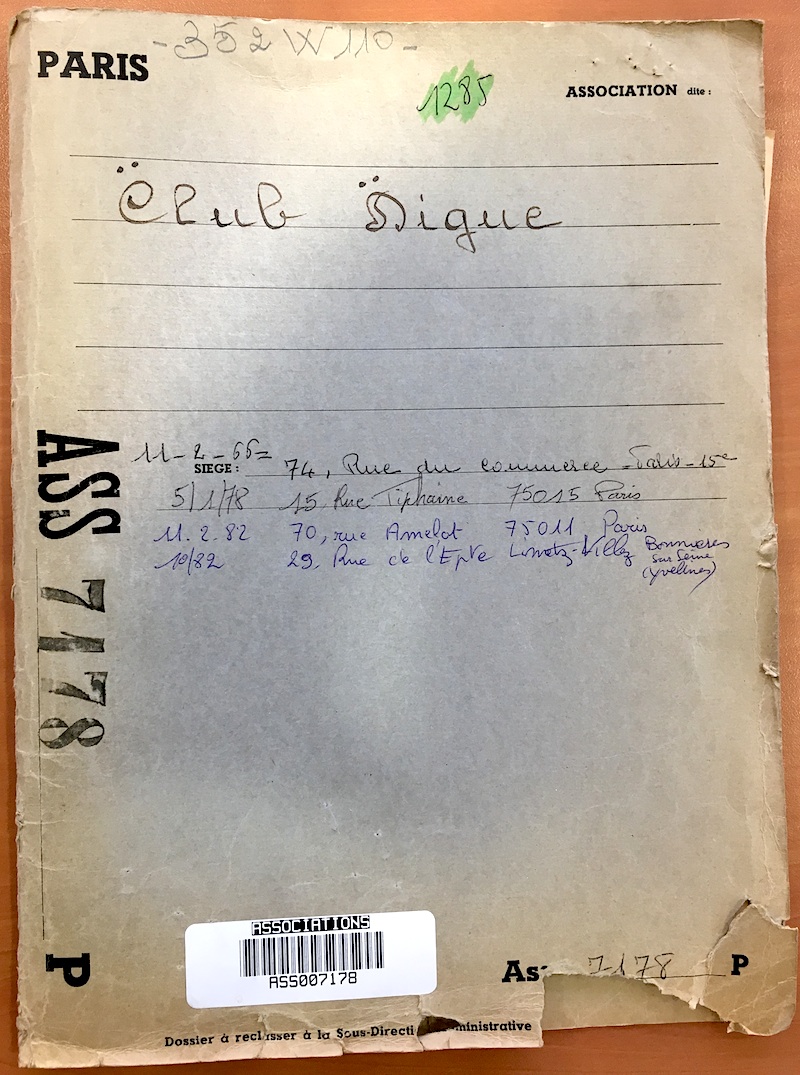 - 352 W 110 -
PARIS
1285
ASSOCIATION dite :
Club Digue
11-2-66=
SIEGE : 74, Rue du commerce - Paris - 15e
5/1/78 15 Rue Tiphaine 75015 Paris
11.2.82 70, rue Amelot 75011 Paris
10/82 29, Rue de l'Epte Limetz-Villez Bonnieres
sur Seine
(Yvelines)
ASS 7178
P
ASSOCIATIONS
ASS007178
As 7178 P
Dossier à reclasser à la Sous-Directi ministrative